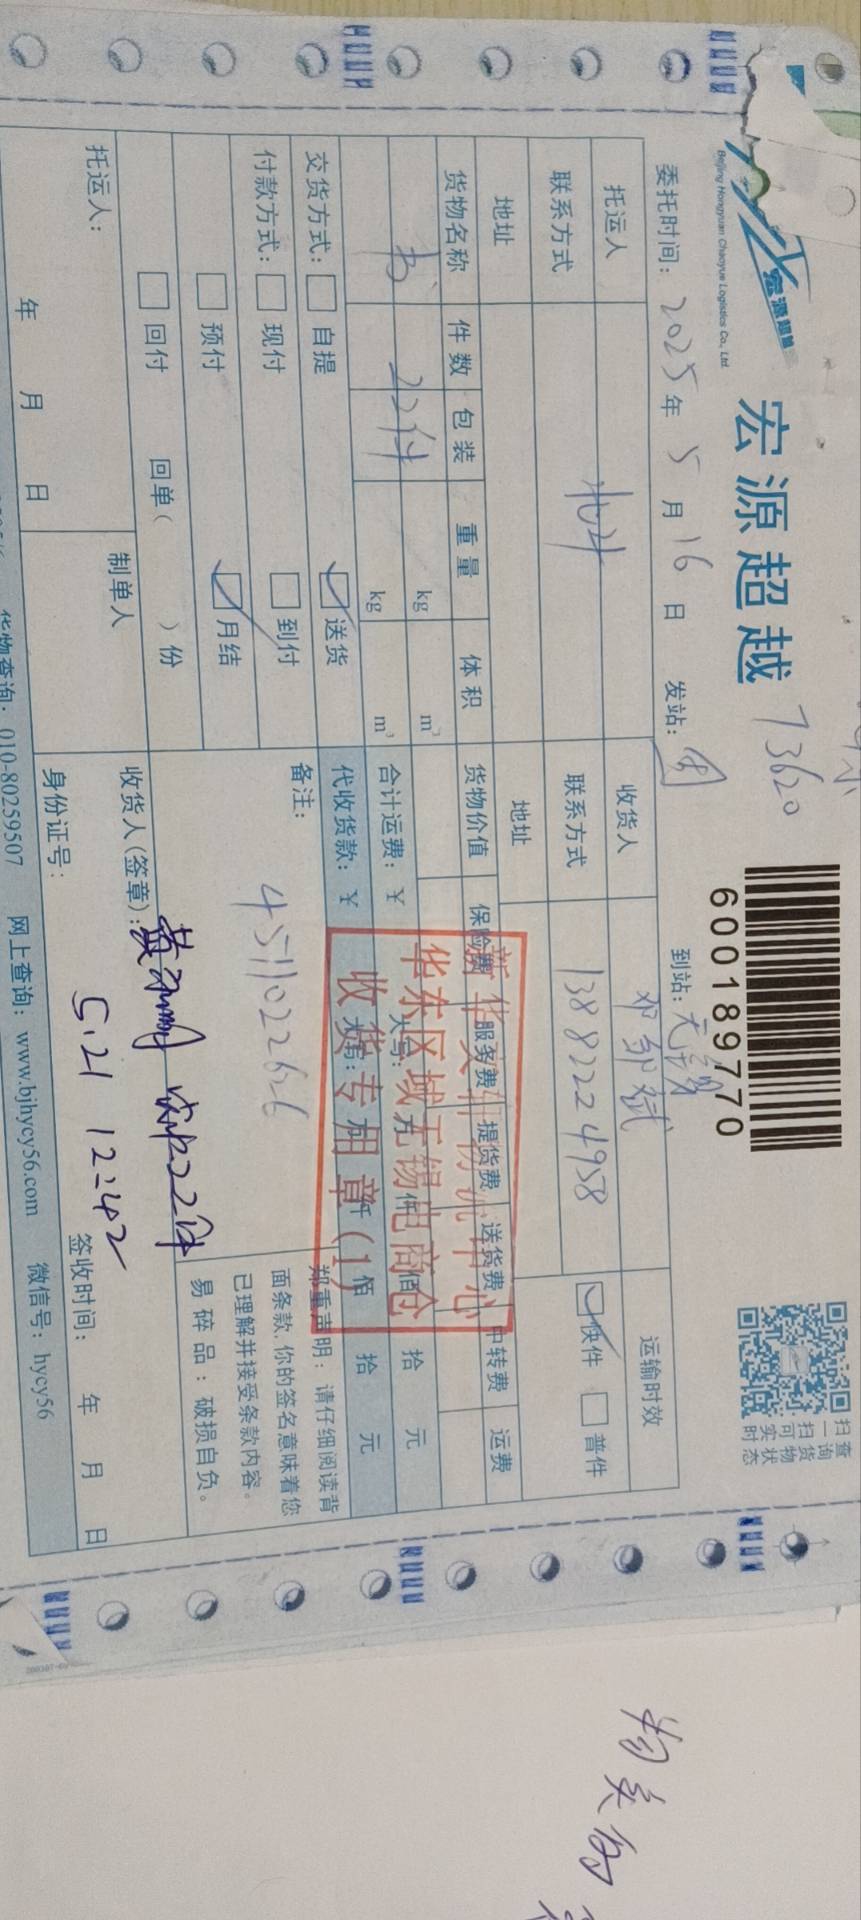 宏源超越
Beijing Hongyuan Chaoyue Logistics Co., Ltd.
宏源超越
73620
600189770
扫一扫可实时
查询货物状态
委托时间：2025年5月16日 发站： 到站：无锡
托运人 收货人 邓邹斌 运输时效
联系方式 联系方式 13882224958 快件 普件
地址 地址
货物名称 件数 包装 重量 体积 货物价值 保险费 服务费 提货费 送货费 中转费 运费
书 22件 kg m³
kg m³
合计运费：¥ 大写： 万 仟 佰 拾 元
代收货款：¥ 大写： 万 仟 佰 拾 元
新华文轩物流中心
华东区域无锡电商仓
收货专用章(1)
交货方式： 自提 送货
付款方式： 现付 到付
预付 月结
回付 回单（ ）份
备注：
4511022626
郑重声明：请仔细阅读背
面条款，你的签名意味着您
已理解并接受条款内容。
易碎品：破损自负。
托运人：
年 月 日
制单人
收货人(签章)： 实收22件
5.21 12:42
身份证号： 签收时间： 年 月 日
货物查询：010-80259507 网上查询：www.bjhycy56.com 微信号：hycy56